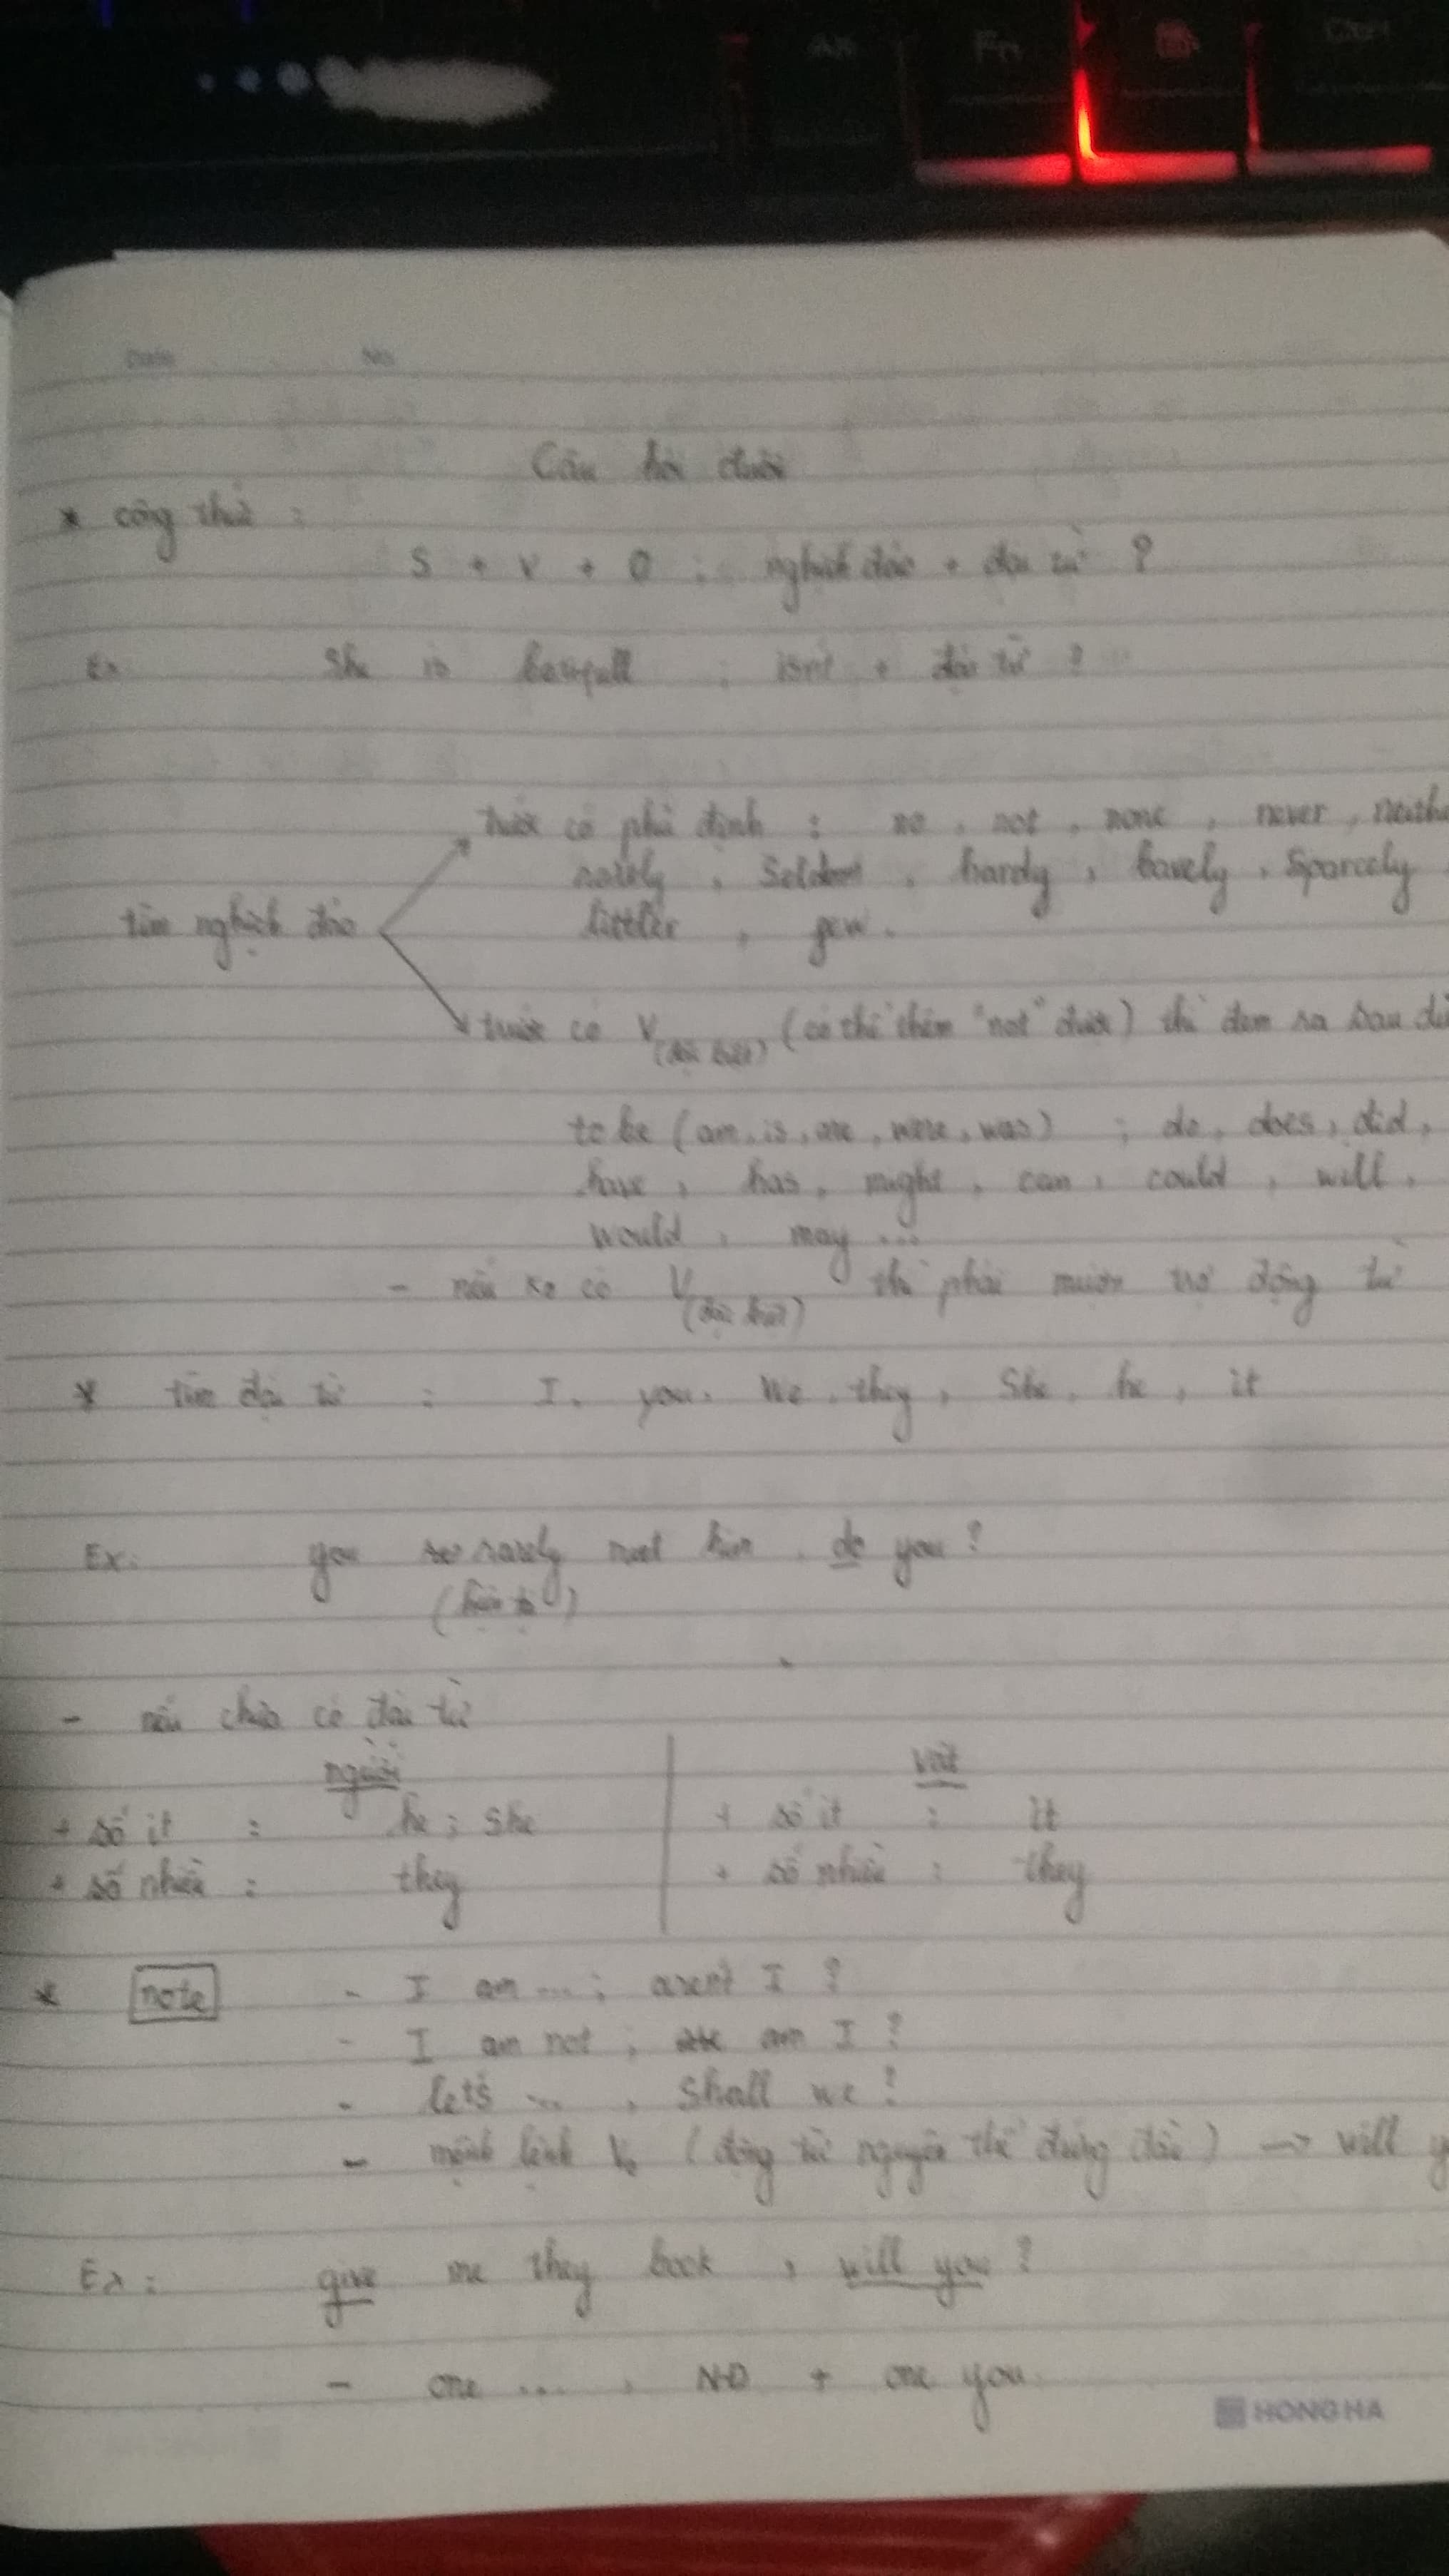 Alt Fn Ctrl
Date No
Câu hỏi đuôi
* công thức :
S + V + O ; nghịch đảo + đại từ ?
Ex She is ; isn't + đại từ ?
trước có phủ định : no , not , none , never , neithe
rarely , Seldom , hardy , barely , Sparcely ,
tìm nghịch đảo
littler , gew .
trước có V (đặc biệt) (có thể thêm "not" được) thì đem ra sau
to be (am, is, are, were, was) ; do, does, did,
have , has , might , can , could , will ,
would , may ...
- nếu ko có V (đặc biệt) thì phải mượn trợ động từ
* tìm đại từ : I , you , We , they , She , he , it
Ex: you rarely meet him , do you ?
(hiện tại)
- nếu chưa có đại từ
người vật
+ số ít : he ; She + số ít : it
+ số nhiều : they + số nhiều : they
* note - I am ... ; aren't I ?
- I am not ; am I ?
- let's ... , Shall we ?
- mệnh lệnh V₀ (động từ nguyên thể đứng đầu) → will y
Ex : give me they book , will you ?
- one ... , N-D + one you
HONG HA